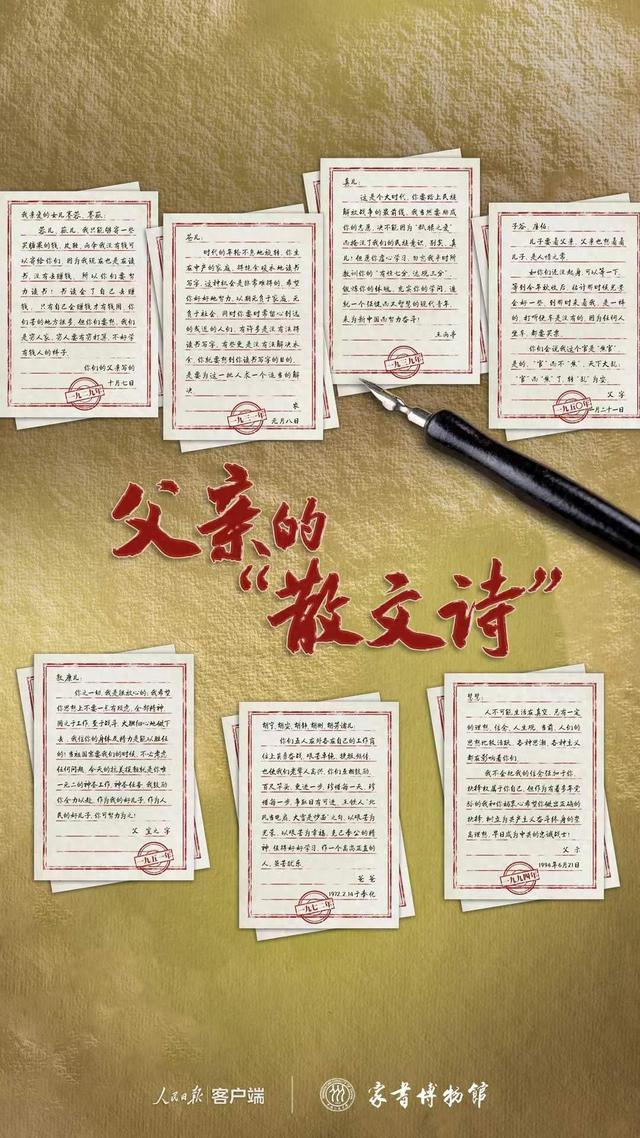 我亲爱的女儿赛蓉、赛薇:
蓉儿、薇儿,我只能够寄一些
买糖果的钱,此外,两余我没有钱可
以寄给你们,因为我现在也是在读
书,没有去赚钱,所以你们要努
力读书!书读会了自己去赚
钱,只有自己会赚才有钱困,你
们苦的地方很多,但你们要想,我们
是穷人家,穷人要有穷打算,不好学
有钱人的样子。
你们的父亲写的
十月七日
一九二九年
苍儿:
时代的年轮不息地旋转,你生
在中产的家庭,得能余暖木地读书
写字,这种机会是非常难得的,希望
你好好地努力,以期无负于家庭,无
负于社会,同时你要时常留心到远
的更远的人们,有许多是没有法得
读书写字的,有些更是没有法解决衣
食,你就要想到你读书写字的目的,
是要为这一批人求一个适当的解
决
农
元月八日
一九三一年
真儿:
这是个大时代,你要踏上民族
解放战争的最前线,我当然要助成
你的志愿,决不能因为“舐犊之爱”
而掩没了我们的民族意识。别矣,真
儿!但愿你虚心学习,勿忘我平时所
教训你的“有恒七分,达观三分”,
锻炼你的体魄,充实你的学问,造
就一个强健而又智慧的现代青年,
来为新中国而努力奋斗!
王尚亭
一九三九年
子谷、广伯:
儿子要看父亲,父亲也想看看
儿子,是人情之常。
如你们还没起身,可以等一下,
等到今年秋收后,估计那时候光景
会好一些,到那时来看我,是一样
的。打听便车是没有的,因为任何人
坐车,都要买票。
你们会说我这个官是“焦官”,
是的,“官”而不“焦”,天下大乱;
“官”而“焦”了,转“乱”为安。
父字
二月二十一日
一九五〇年
父亲的
“散文诗”
教康儿:
你之一切,我是很放心的;我希望
你思想上不要一点有顾虑,全部精神,
用之于工作,至于战斗,大胆细心地做下
去,我信你的身体及精力是能以胜任
的!当祖国需要我们的时候,不必考虑
任何问题,今天的抗美援朝就是你唯
一无二的神圣工作、神圣任务,我鼓励
你全力以赴,作为我的好儿子,作为人
民的好儿子,你可努力为之!
父宣之字
一九五一年
你们五人在外各在自己的工作岗
位上英勇奋战,艰苦卓绝,捷报频传,
也使我们老辈人高兴。你们互相鼓励,
百尺竿头,更进一步,珍惜每一天,珍惜
每一步,争取日有可进。王铁人“北
风当电扇,大雪是炒面”之句,以艰苦为
光荣,以艰苦为幸福,克己奉公的精
神,值得好好学习,作一个高尚正直的
人,英苦犹乐
爸爸
1972.2.14于奉化
一九七二年
慧慧:
人不可能生活在真空,总有一定
的理想、信念、人生观。当前,人们的
思想比较活跃,各种思潮、各种主义
都在影响着你们。
我不会把我的信念强加于你,
抉择权属于自己,但作为有着多年党
龄的我和你妈衷心希望你做出正确的
抉择,树立为共产主义奋斗终身的崇
高理想,早日成为中共的忠诚战士!
父示
1994年6月21日
一九九四年
人民日报 客户端
家书博物馆